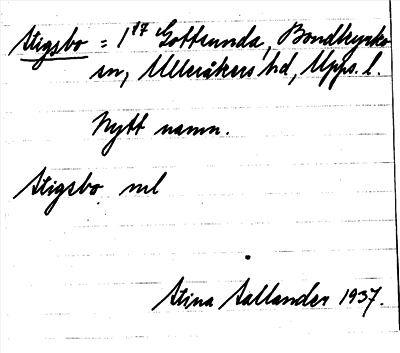 Stigsbo = 1¹⁷ Gottsunda, Bondkyrko
sn, Ulleråkers hd, Upps. l.
Nytt namn.
Stigsbo ml
Stina Sallander 1937.